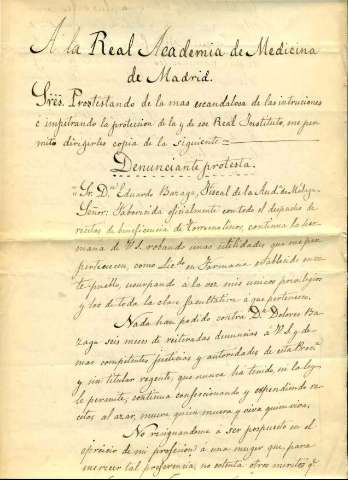 A la Real Academia de Medicina
de Madrid.
Sres. Prostestando de la mas escandalosa de las intrusiones
é impetrando la proteccion de la y de ese Real Instituto, me per-
mito dirigirles copia de la siguiente
Denunciante protesta.
"Sr. D. Eduardo Bazaga, Fiscal de la Aud.ª de Málaga.
Señor: Favorecida oficialmente con todo el despacho de
recetas de beneficencia de Torremolinos, continua la her-
mana de V.S. robando unas utilidades que me per-
pertenecen, como Licdo. en Farmacia establecido en es-
te pueblo, usurpando á la vez mis únicos privilegios
y los de toda la clase facultativa á que pertenezco.
Nada han podido contra Dª Dolores Ba-
zaga seis meses de reiteradas denuncias á V.S. y de-
mas competentes justicias y autoridades de esta Provª
y sin titular regente, que nunca ha tenido, ni la ley
le permite, continua confeccionando y expendiendo re-
cetas al azar, muera quien muera y viva quien viva.
No resignandome á ser pospuesto en el
ejercicio de mi profesion á una muger que, para
merecer tal preferencia, no ostenta otros meritos qe.